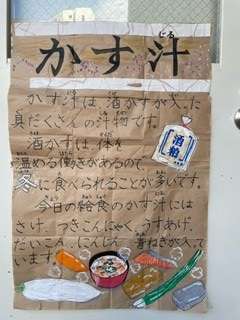 かす汁
じる
かす汁は、酒かすが入った
具だくさんの汁物です。
酒かすは、体を
温める働きがあるので、
冬に食べられることが多いです。
今日の給食のかす汁には
さけ、つきこんにゃく、うすあげ、
だいこん、にんじん、青ねぎが入って
います。
酒粕